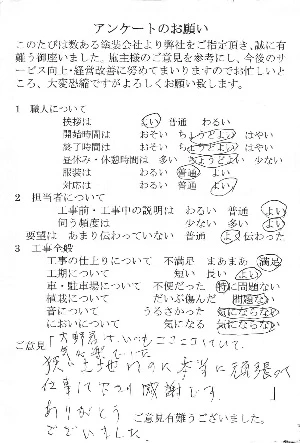 アンケートのお願い
このたびは数ある塗装会社より弊社をご指定頂き、誠に有
難う御座いました。施主様のご意見を参考にし、今後のサ
ービス向上・経営改善に努めてまいりますのでお忙しいと
ころ、大変恐縮ですがよろしくお願い致します。
1 職人について
挨拶は よい 普通 わるい
開始時間は おそい ちょうどよい はやい
終了時間は おそい ちょうどよい はやい
昼休み・休憩時間は 多い ちょうどよい 少ない
服装は わるい 普通 よい
対応は わるい 普通 よい
2 担当者について
工事前・工事中の説明は わるい 普通 よい
伺う頻度は 少ない 多い よい
要望は あまり伝わっていない 普通 よく伝わった
3 工事全般
工事の仕上りについて 不満足 まあまあ 満足
工期について 短い 長い よい
車・駐車場について 不便だった 特に問題ない
植栽について だいぶ傷んだ 問題ない
音について うるさかった 気にならない
においについて 気になる 気にならない
ご意見「
狭い土地なのに本当に頑張って
仕事して下さり感謝です。 」
ありがとう ご意見有難うございました。
ございました